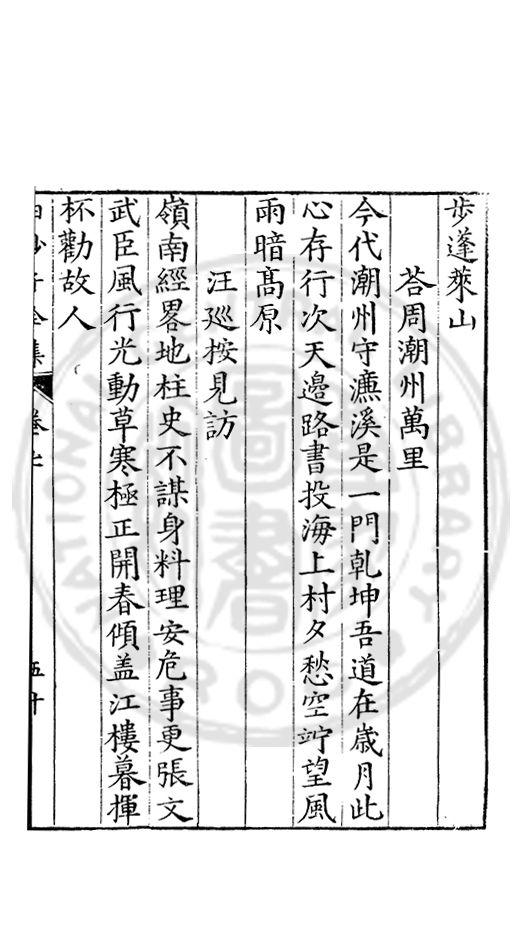 步蓬萊山
荅周潮州萬里
今代潮州守濂溪是一門乾坤吾道在歲月此
心存行次天邉路書投海上村夕愁空竚望風
雨暗髙原
汪廵按見訪
嶺南經畧地柱史不謀身料理安危事更張文
武臣風行光動草寒極正開春傾盖江樓暮揮
杯勸故人